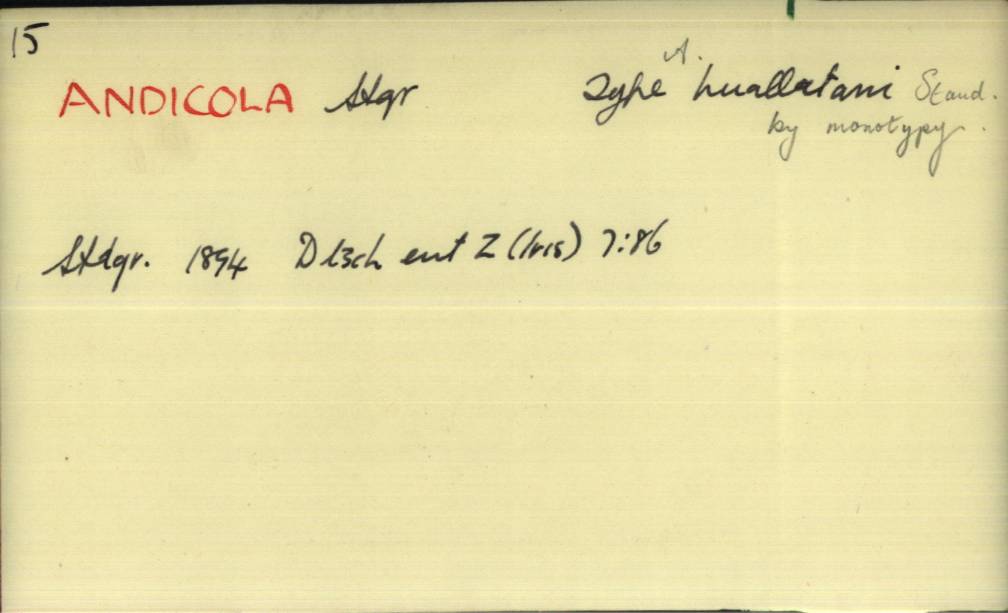 15
ANDICOLA Stgr Type A. huallatani Staud.
by monotypy.
Stdgr. 1894 Dtsch ent Z (Iris) 7:86